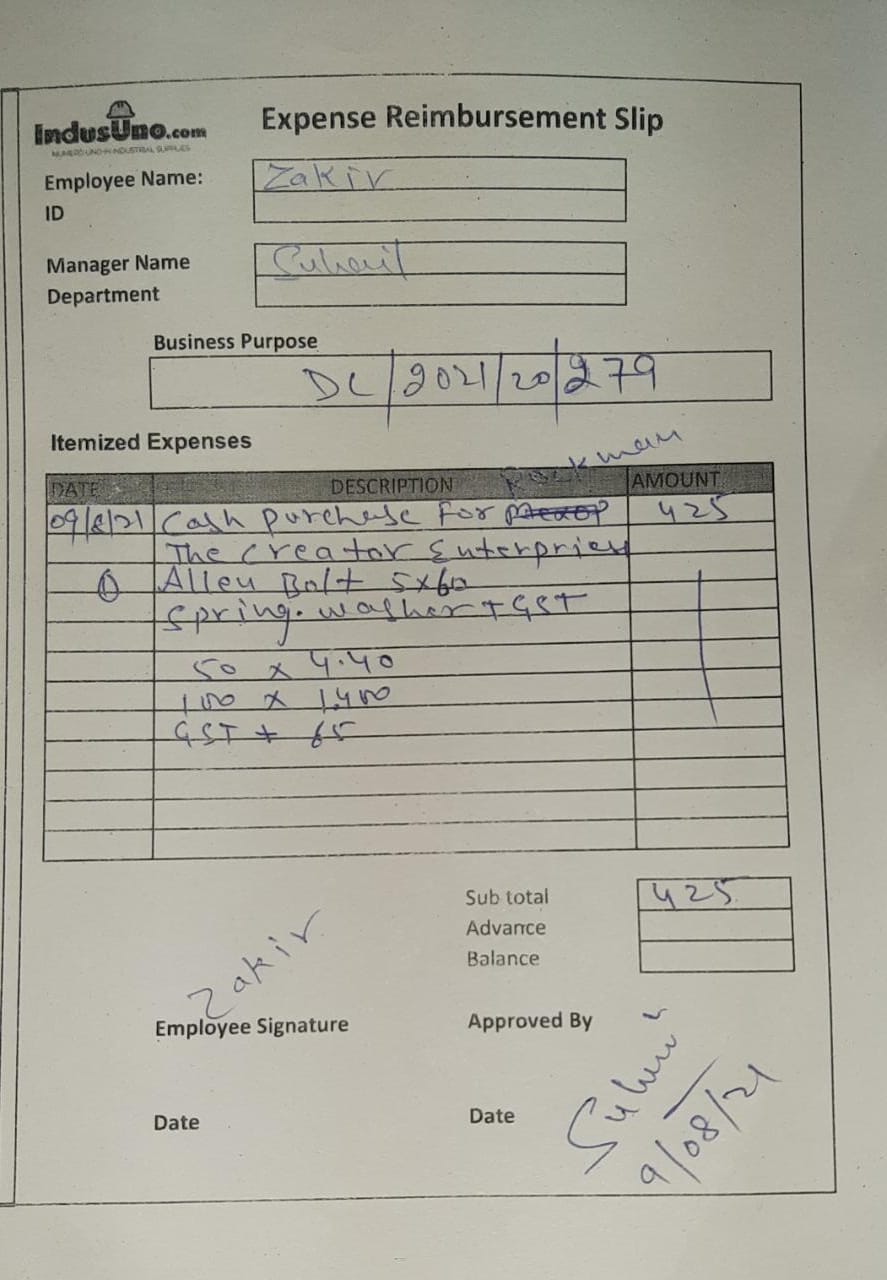 IndusUno.com
NUMERO UNO IN INDUSTRIAL SUPPLIES
Expense Reimbursement Slip
Employee Name: Zakir
ID
Manager Name Suhail
Department
Business Purpose
DC/2021/20/279
Itemized Expenses
Rockman
DATE DESCRIPTION AMOUNT
09/8/21 Cash purchase For 425
The Creator Enterpries
① Allen Bolt 5x60
Spring. washer + GST
50 x 4.40
100 x 1.400
GST + 65
Sub total 425
Advance
Balance
Zakir
Employee Signature
Approved By
Date
Date
9/08/21